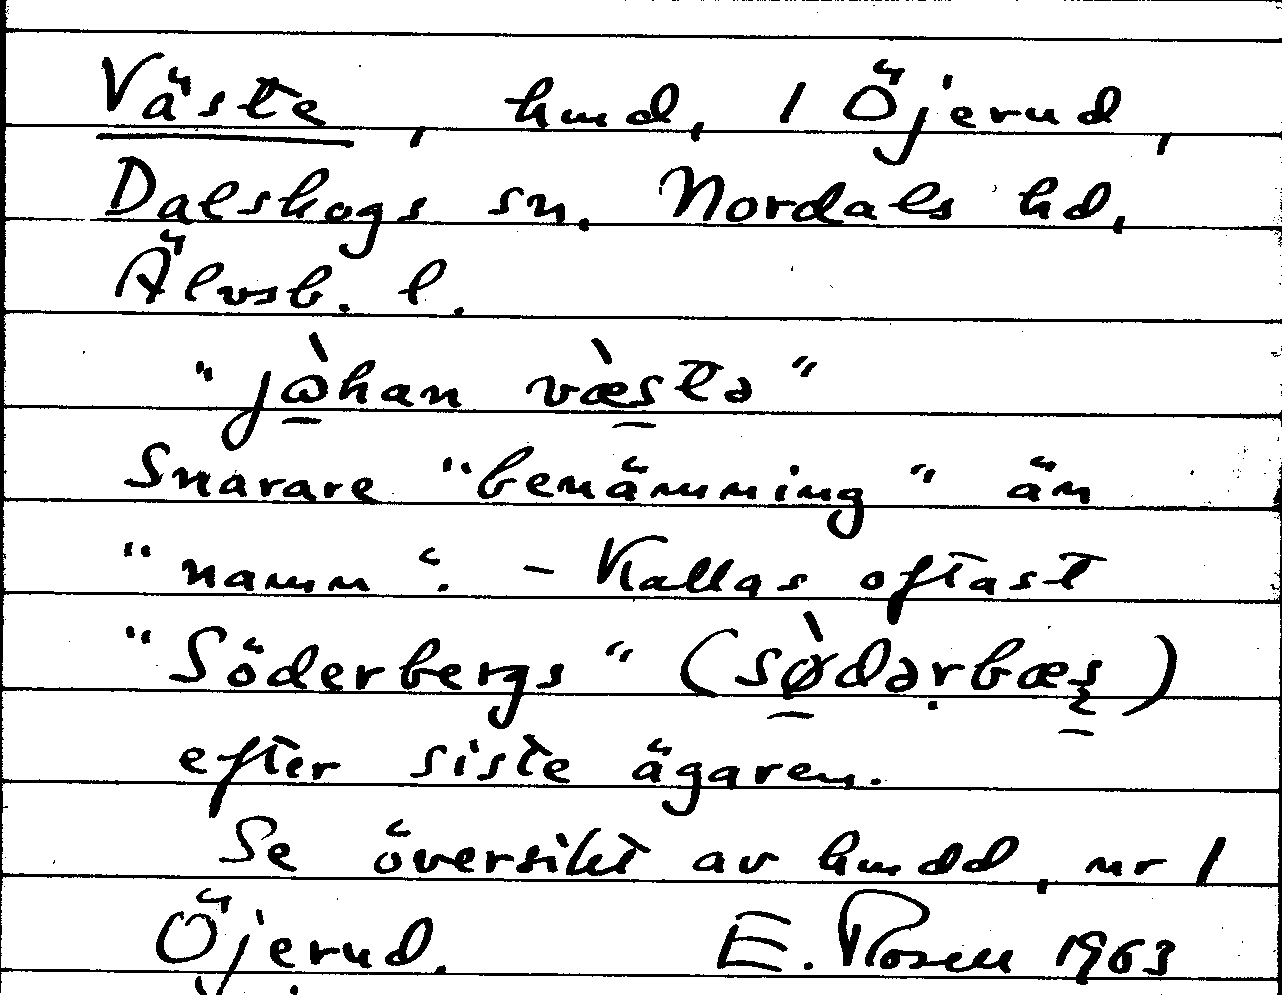 Väste, hmd, 1 Öjerud,
Dalskogs sn. Nordals hd,
Älvsb. l.
"jὼ̱han væ̱̀stə"
Snarare "benämning" än
"namn". – Kallas oftast
"Söderbergs" (sø̱̀dəṛbæş̱)
efter siste ägaren.
Se översikt av hmdd, nr 1
Öjerud. E. Rosell 1963